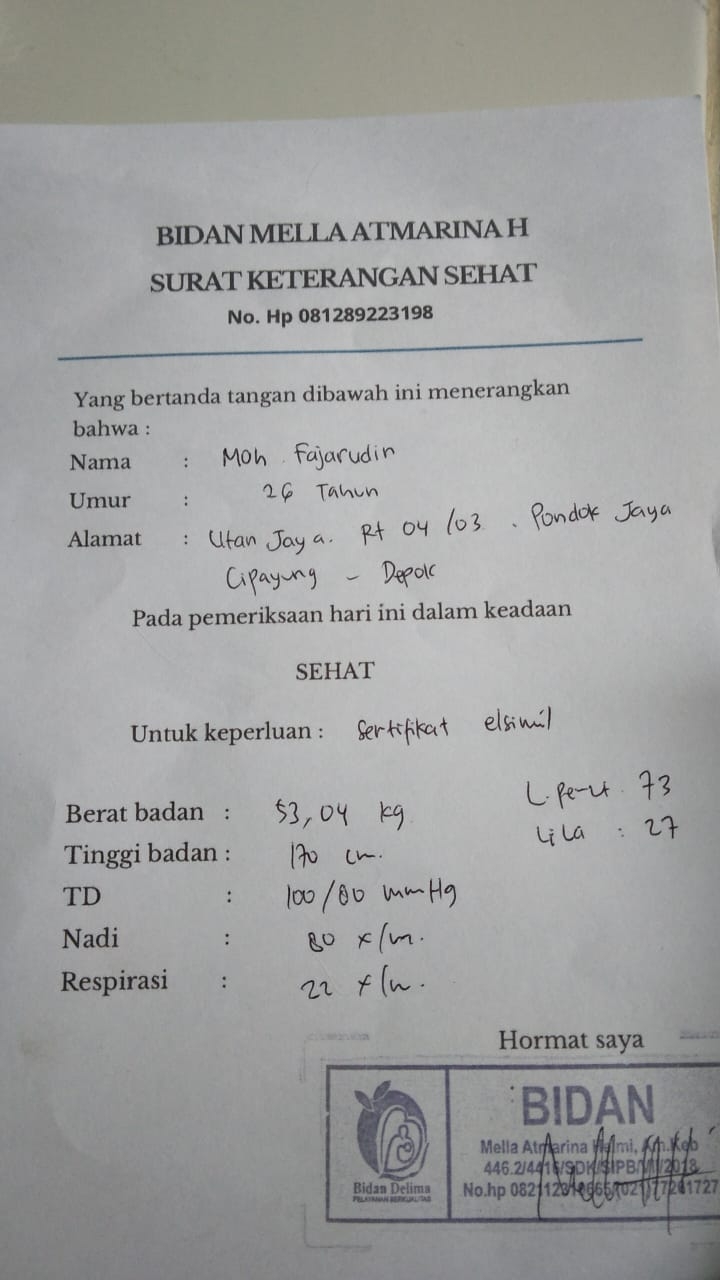 BIDAN MELLA ATMARINA H
SURAT KETERANGAN SEHAT
No. Hp 081289223198
Yang bertanda tangan dibawah ini menerangkan
bahwa :
Nama : Moh. Fajarudin
Umur : 26 Tahun
Alamat : Utan Jaya. Rt 04/03. Pondok Jaya
Cipayung - Depok
Pada pemeriksaan hari ini dalam keadaan
SEHAT
Untuk keperluan : Sertifikat elsimil
Berat badan : 53,04 kg
L. perut 73
Tinggi badan : 170 cm.
Lila : 27
TD : 100/80 mmHg
Nadi : 80 x/m.
Respirasi : 22 x/m.
Hormat saya
BIDAN
Mella Atmarina
Bidan Delima
PELAYANAN BERKUALITAS
No.hp